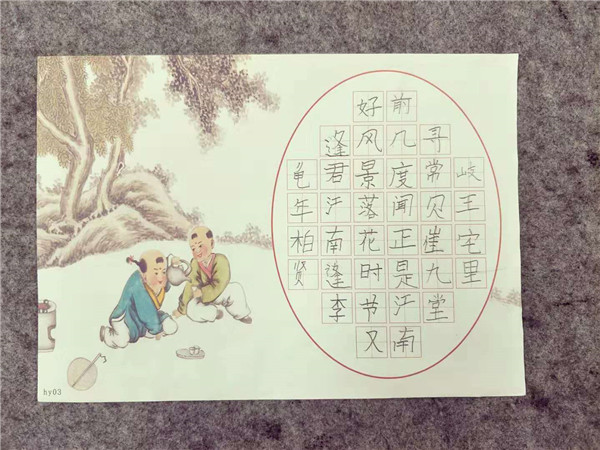 岐王宅里
寻常见崔九堂
前几度闻正是江南
好风景落花时节又
逢君江南逢李
龟年柏贤
hy03